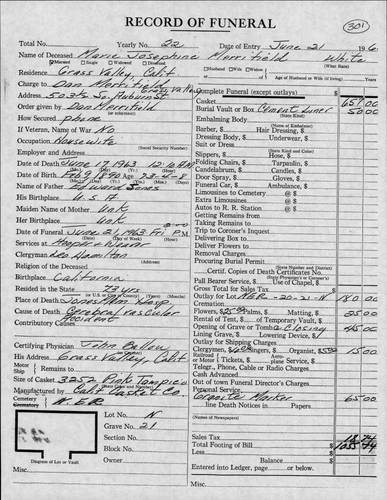 RECORD OF FUNERAL
301
Total No. Yearly No. 22 Date of Entry June 21 196
Name of Deceased Marie Josephine Merrifield White
Married Single Widowed Divorced Husband Wife Widow or Age of Husband or Wife (if living)
Residence Grass Valley, Calif.
Charge to Dan Merrifield
Address
Order given by Dan Merrifield
How Secured phone
If Veteran, Name of War No
Occupation Housewife
Employer and Address
Date of Death June 17, 1963
Date of Birth Feb 9, 1890 Age 73-4-8
Name of Father Edward Jones
His Birthplace U.S.A
Maiden Name of Mother Unk
Her Birthplace Unk
Date of Funeral June 21, 1963 Fri P.M.
Services at Hooper & Weaver
Clergyman Leo Hamilton
Religion of the Deceased
Birthplace California
Resided in the State 73 yrs
Place of Death Jones Mem Hosp
Cause of Death Cerebral vascular
accident
Contributory Cause
Certifying Physician John Bellen
His Address Grass Valley, Calif
Motor
Ship Remains to
Size of Casket 3252
Manufactured by Calif Casket Co
Cemetery
Crematory
Lot No. N
Grave No. 21
Section No.
Block No.
Owner
Diagram of Lot or Vault
Misc.
Complete Funeral (except outlays) $
Casket 657.00
Burial Vault or Box Cement Liner 50.00
(State Kind)
Embalming Body
(Name of Embalmer)
Barber, $ Hair Dressing, $
Dressing Body, $ Underwear, $
Suit or Dress
(State Kind and Color)
Slippers, $ Hose, $
Folding Chairs, $ Tarpaulin, $
Candelabrum, $ Candles, $
Door Spray, $ Gloves, $
Funeral Car, $ Ambulance, $
Limousines to Cemetery @ $
Extra Limousines @ $
Autos to R. R. Station @ $
Getting Remains from
Taking Remains to
Trip to Coroner's Inquest
Delivering Box to
Deliver Flowers to
Removal Charges
Procuring Burial Permit
(State Number and District)
Certif. Copies of Death Certificates No.
(State Physician's or Coroner's)
Pall Bearer Service, $ Use of Chapel, $
Gross Total for Sales Tax $
Outlay for Lot 180.00
Flowers, $25.00 Palms, $ Matting, $ 25.00
Rental of Tent, $ of Temporary Vault, $
Opening of Grave or Tomb & Closing 45.00
Lining Grave, $ Lowering Device, $
Outlay for Shipping Charges
Clergyman, $10.00 Singers, $ Organist, $5.00 15.00
Railroad
or Motor Tickets, $ Aeroplane Service, $
Telg., Phone, Cable or Radio Charges
Cash Advanced
Out of town Funeral Director's Charges
Personal Service
Granite Marker 65.00
line Death Notices in Papers
(Names of Newspapers)
Sales Tax
Total Footing of Bill $
Less
Balance $
Entered into Ledger, page or below.